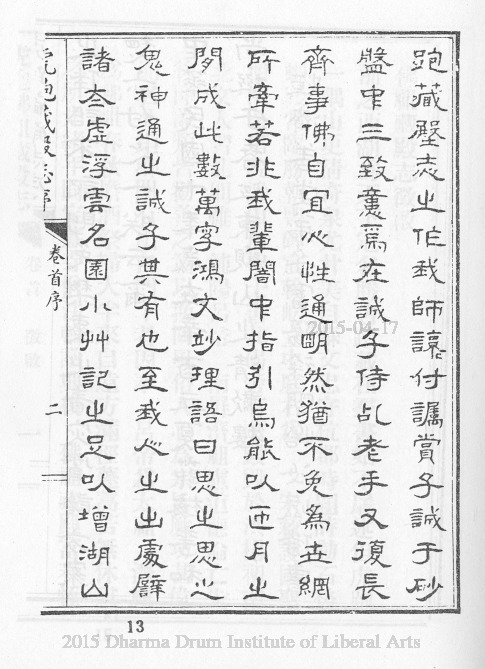 跑藏壂志之作我師讓付囑賞子誠于砂
盤中三致意焉在誠子侍乩老手又復長
齊事佛自宜心性通明然猶不免為世網
所牽若非我輩闇中指引烏能以匝月之
間成此數萬字鴻文妙理語曰思之思之
鬼神通之誠子其有也至我心之出處譬
諸太虛浮雲名園小艸記之足以增湖山
虎跑藏殿志序 卷首序 二
13
2015-04-17
2015 Dharma Drum Institute of Liberal Arts